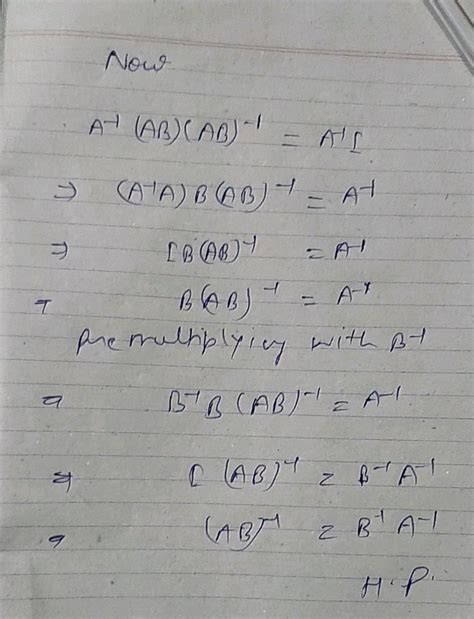 Now
A⁻¹ (AB)(AB)⁻¹ = A⁻¹I
⇒ (A⁻¹A) B(AB)⁻¹ = A⁻¹
⇒ I B(AB)⁻¹ = A⁻¹
B(AB)⁻¹ = A⁻¹
Premultiplying with B⁻¹
⇒ B⁻¹B (AB)⁻¹ = A⁻¹
⇒ I (AB)⁻¹ = B⁻¹ A⁻¹
⇒ (AB)⁻¹ = B⁻¹ A⁻¹
H.P.